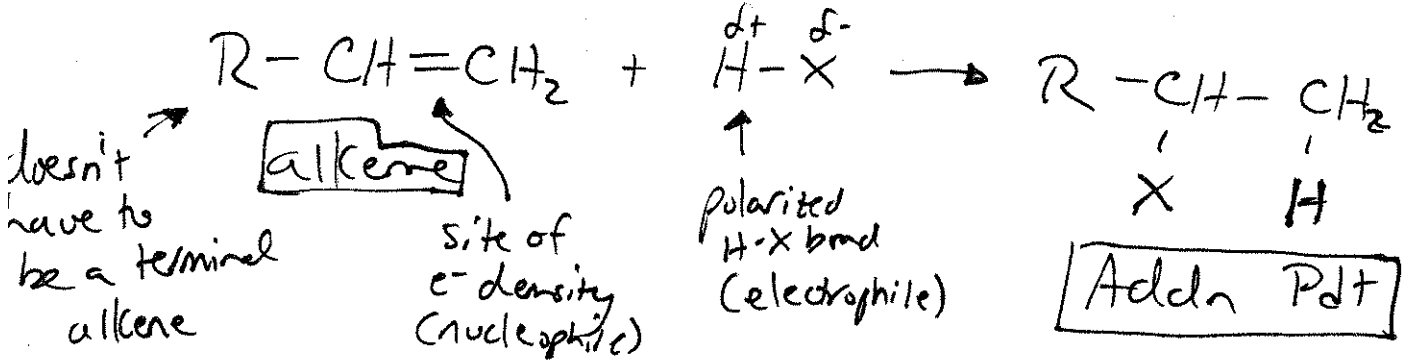 δ+ δ-
R - CH = CH₂ + H - X → R - CH - CH₂
X H
doesn't
have to
be a terminal
alkene
alkene
site of
e⁻ density
(nucleophile)
polarized
H-X bond
(electrophile)
Addn Pdt